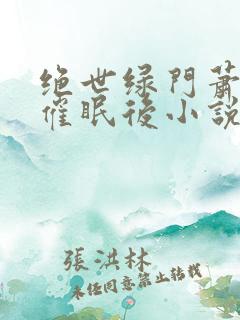 绝世绿門蕭
催眠後小說
張洪林
未经同意禁止转载